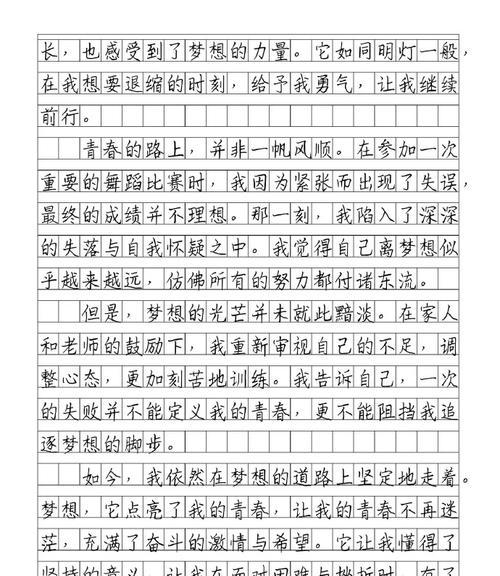 长，也感受到了梦想的力量。它如同明灯一般，
在我想要退缩的时刻，给予我勇气，让我继续
前行。
青春的路上，并非一帆风顺。在参加一次
重要的舞蹈比赛时，我因为紧张而出现了失误，
最终的成绩并不理想。那一刻，我陷入了深深
的失落与自我怀疑之中。我觉得自己离梦想似
乎越来越远，仿佛所有的努力都付诸东流。
但是，梦想的光芒并未就此黯淡。在家人
和老师的鼓励下，我重新审视自己的不足，调
整心态，更加刻苦地训练。我告诉自己，一次
的失败并不能定义我的青春，更不能阻挡我追
逐梦想的脚步。
如今，我依然在梦想的道路上坚定地走着。
梦想，它点亮了我的青春，让我的青春不再迷
茫，充满了奋斗的激情与希望。它让我懂得了
坚持的意义，让我在面对困难与挫折时，有了